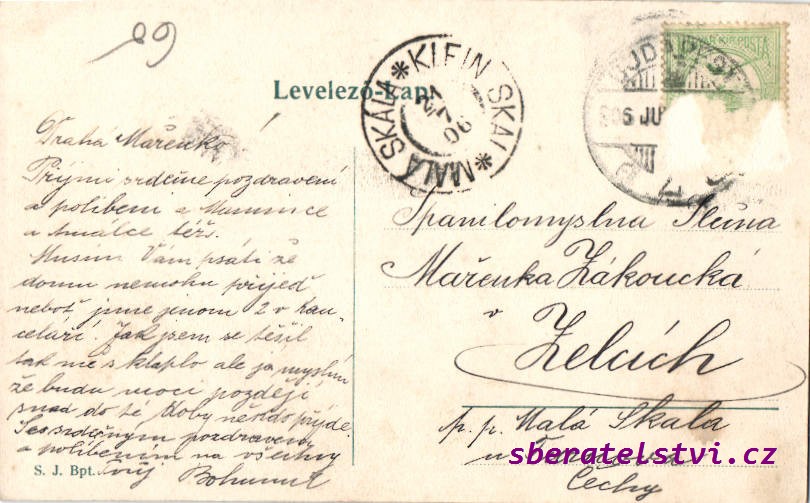 89
Levelezö-Lap.
KLEIN SKAL * MALÁ SKÁLA *
21 7 06
MAGYAR KIR. POSTA
BUDAPEST
906 JU
Drahá Mařenko!
Přijmi srdečné pozdravení
a políbení a Mamince
a Amálce též.
Musím Vám psáti že
domu nemohu přijeď
neboť jsme jenom 2 v kan-
celáři. Jak jsem se těšil
tak mě sklaplo ale já myslím
že budu moci později
snad do té doby někdo přijde.
Se srdečným pozdravem
a políbením na všechny
Tvůj Bohumil
S. J. Bpt.
Spanilomyslna Slečna
Mařenka Žákoucká
v
Zelcích
p. p. Malá Skala
u
Čechy
sberatelstvi.cz